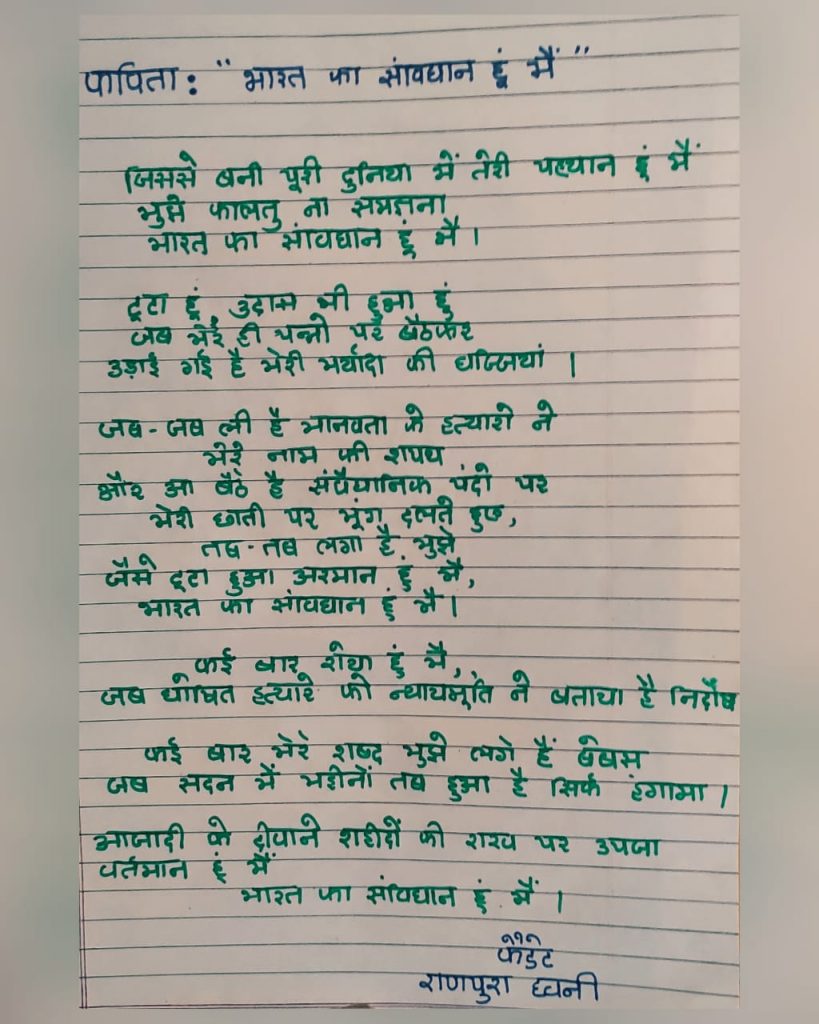 कविता : " भारत का संविधान हूं मैं "
जिससे बनी पूरी दुनिया में तेरी पहचान हूं मैं
मुझे फालतु ना समझना
भारत का संविधान हूं मैं ।
टूटा हूं, उदास भी हुआ हूं
जब मेरे ही पन्नो पर बैठकर
उड़ाई गई है मेरी मर्यादा की धज्जियां ।
जब - जब ली है मानवता के हत्यारो ने
मेरे नाम की शपथ
और आ बैठे है संवैधानिक पदो पर
मेरी छाती पर मूंग दलते हुए,
तब - तब लगा है मुझे
जैसे टूटा हुआ अरमान हूं मैं,
भारत का संविधान हूं मैं ।
कई बार रोया हूं मैं,
जब घोषित हत्यारे को न्यायमूर्ति ने बताया है निर्दोष
कई बार मेरे शब्द मुझे लगे हैं बेबस
जब सदन में महीनों तब हुआ है सिर्फ हंगामा ।
आजादी के दीवाने शहीदों की राख पर उपजा
वर्तमान हूं मैं
भारत का संविधान हूं मैं ।
केडेट
राणपुरा ध्वनी